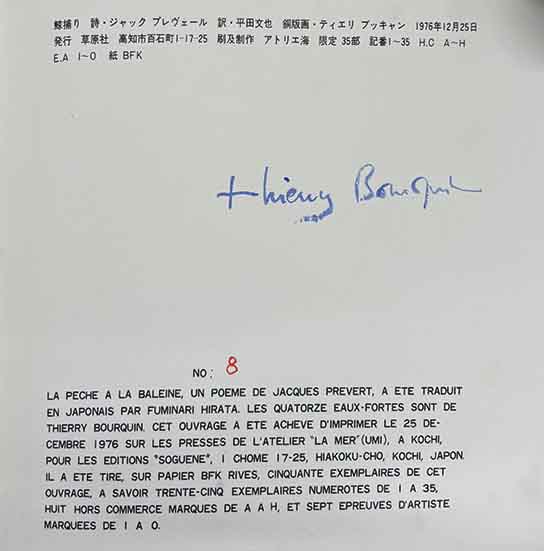 鯨捕り 詩・ジャック プレヴェール 訳・平田文也 銅版画・ティエリ ブッキャン 1976年12月25日
発行 草原社 高知市百石町1-17-25 刷及制作 アトリエ海 限定 35部 記番1~35 H.C A~H
E.A 1~0 紙 BFK
Thierry Bourquin
NO: 8
LA PECHE A LA BALEINE, UN POEME DE JACQUES PREVERT, A ETE TRADUIT
EN JAPONAIS PAR FUMINARI HIRATA. LES QUATORZE EAUX-FORTES SONT DE
THIERRY BOURQUIN. CET OUVRAGE A ETE ACHEVE D'IMPRIMER LE 25 DE-
CEMBRE 1976 SUR LES PRESSES DE L'ATELIER "LA MER"(UMI), A KOCHI,
POUR LES EDITIONS "SOGUENE", 1 CHOME 17-25, HIAKOKU-CHO, KOCHI, JAPON.
IL A ETE TIRE, SUR PAPIER BFK RIVES, CINQUANTE EXEMPLAIRES DE CET
OUVRAGE, A SAVOIR TRENTE-CINQ EXEMPLAIRES NUMEROTES DE 1 A 35,
HUIT HORS COMMERCE MARQUES DE A A H, ET SEPT EPREUVES D'ARTISTE
MARQUEES DE 1 A 0.